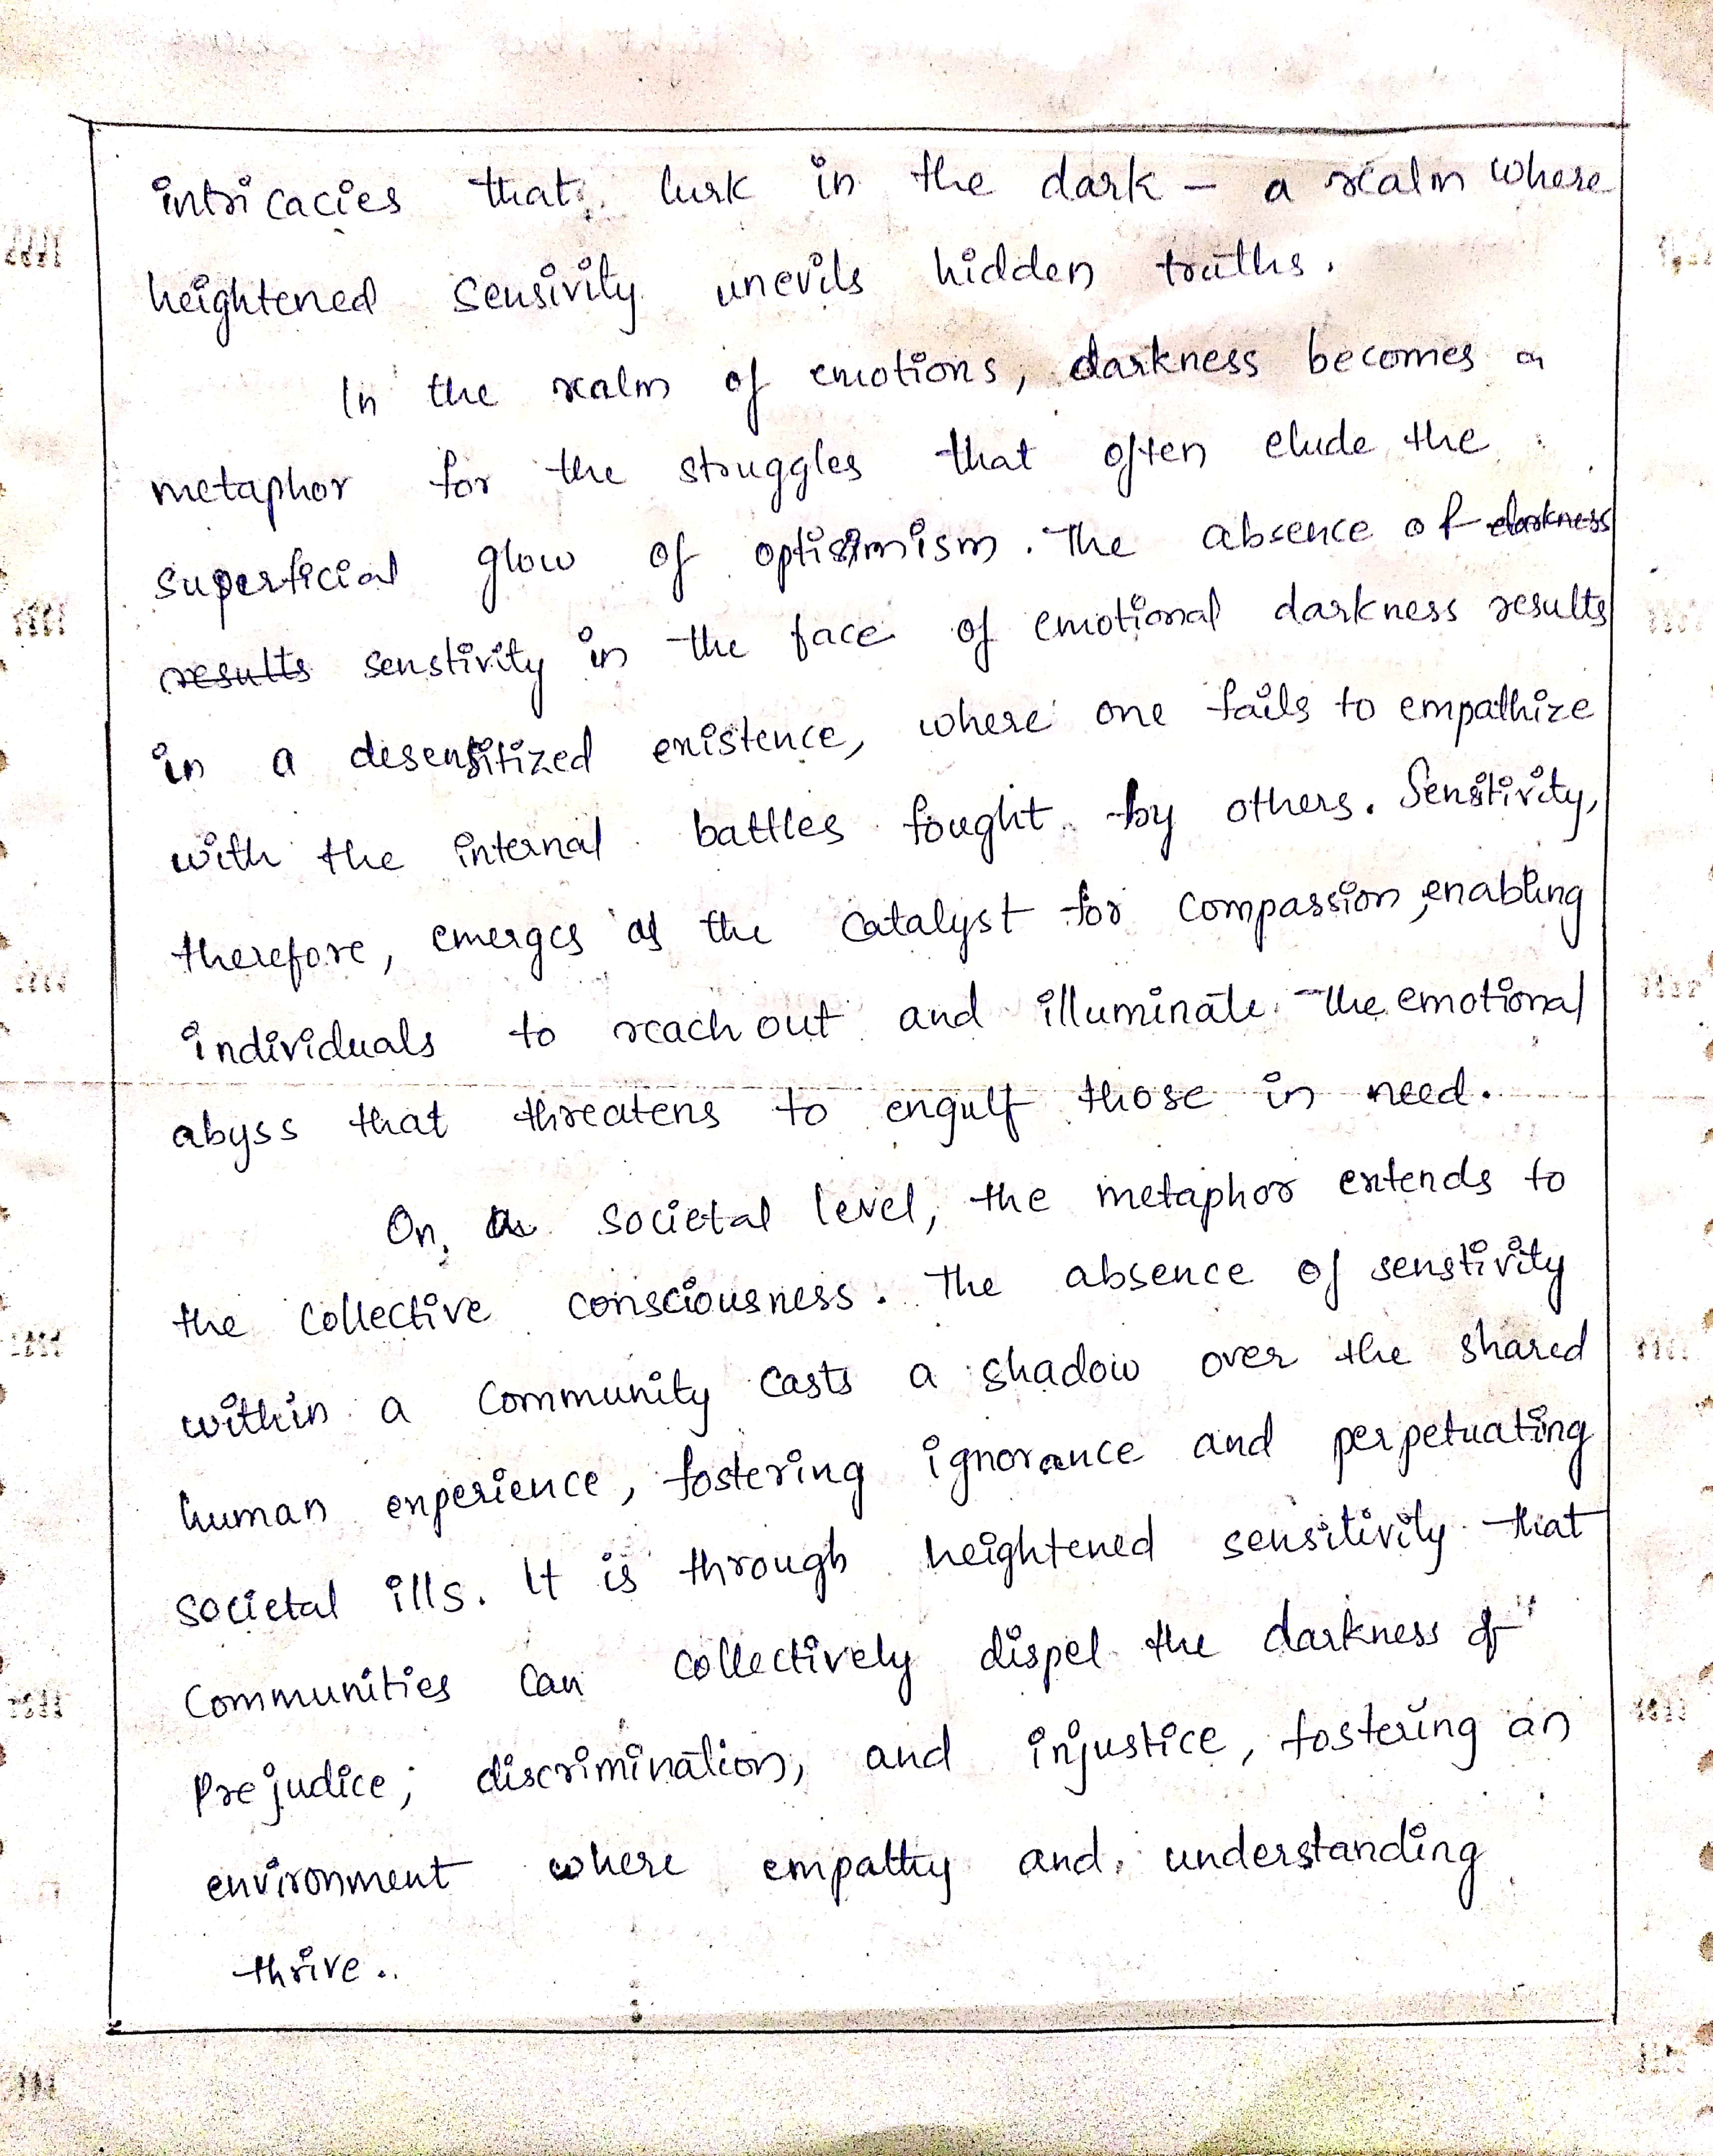 intricacies that lurk in the dark – a realm where
heightened Sensivity unevils hidden truths.
In the realm of emotions, darkness becomes a
metaphor for the struggles that often elude the
superficial glow of optisimism. The absence of ~~darkness~~
~~results~~ senstivity in the face of emotional darkness results
in a desensitized existence, where one fails to empathize
with the internal battles fought by others. Sensitivity,
therefore, emerges as the catalyst for compassion, enabling
individuals to reach out and illuminate the emotional
abyss that threatens to engulf those in need.
On, a societal level, the metaphor extends to
the collective consciousness. The absence of senstivity
within a community casts a shadow over the shared
human experience, fostering ignorance and perpetuating
societal ills. It is through heightened sensitivity that
communities can collectively dispel the darkness of
Prejudice, discrimination, and injustice, fostering an
environment where empathy and understanding
thrive.